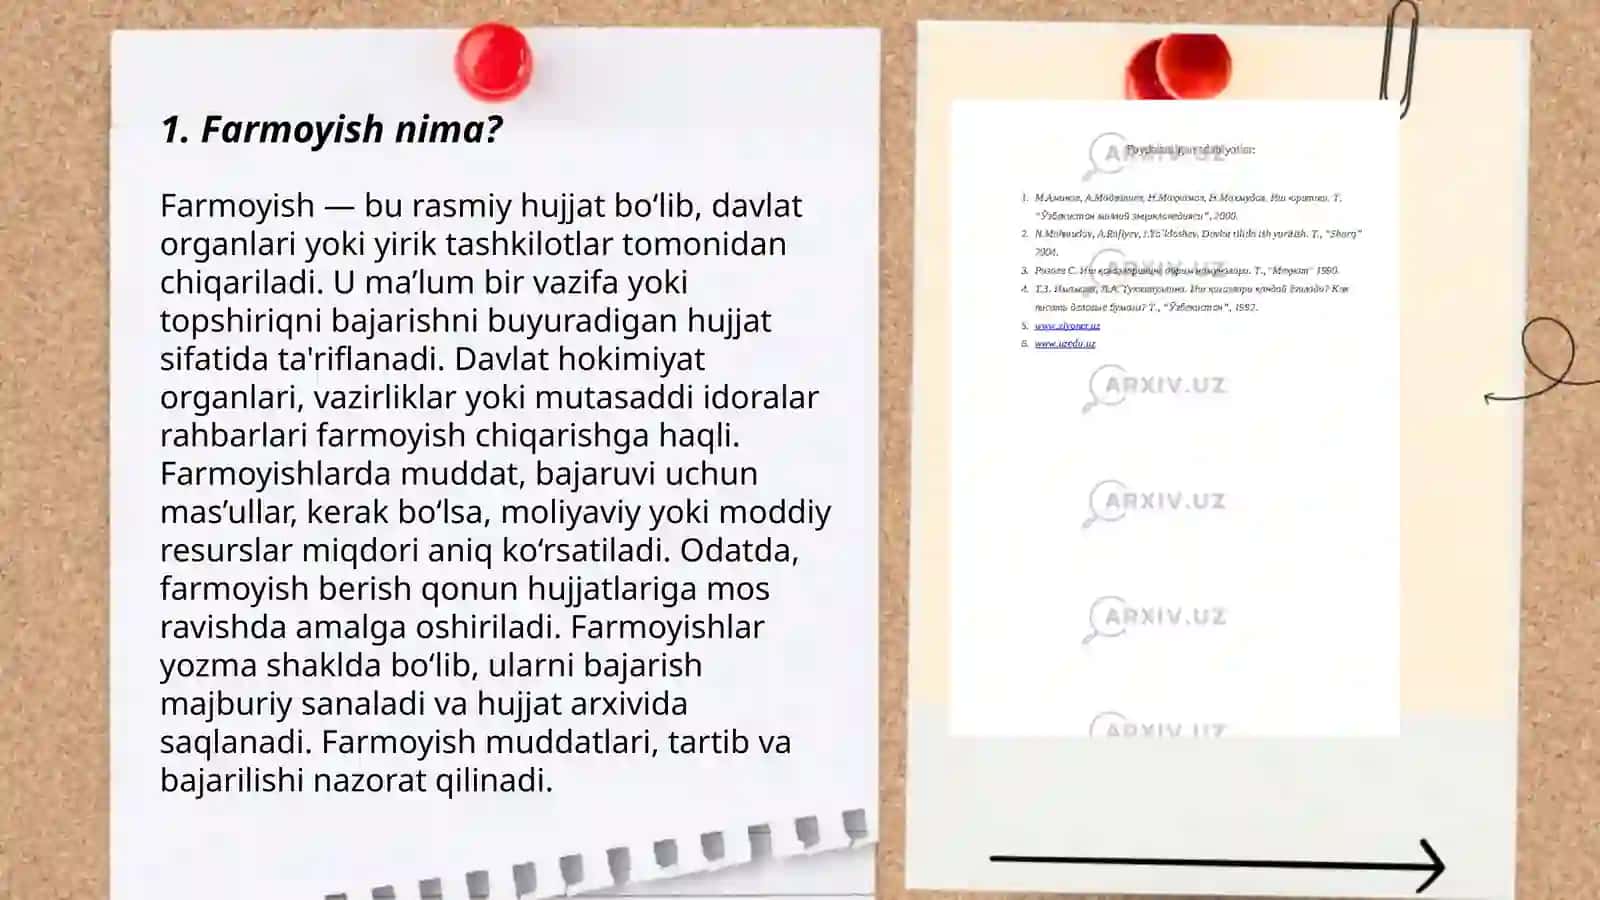 1. Farmoyish nima?
Farmoyish — bu rasmiy hujjat bo‘lib, davlat
organlari yoki yirik tashkilotlar tomonidan
chiqariladi. U ma’lum bir vazifa yoki
topshiriqni bajarishni buyuradigan hujjat
sifatida ta'riflanadi. Davlat hokimiyat
organlari, vazirliklar yoki mutasaddi idoralar
rahbarlari farmoyish chiqarishga haqli.
Farmoyishlarda muddat, bajaruvi uchun
mas’ullar, kerak bo‘lsa, moliyaviy yoki moddiy
resurslar miqdori aniq ko‘rsatiladi. Odatda,
farmoyish berish qonun hujjatlariga mos
ravishda amalga oshiriladi. Farmoyishlar
yozma shaklda bo‘lib, ularni bajarish
majburiy sanaladi va hujjat arxivida
saqlanadi. Farmoyish muddatlari, tartib va
bajarilishi nazorat qilinadi.
ARXIV.UZ
1. М.Аминов, А.Мадвалиев, Н.Маҳкамов, Н.Махмудов. Иш юритиш. Т.
“Ўзбекистон миллий энциклопедияси”, 2000.
2. N.Mahmudov, A.Rafiyev, I.Yo‘ldoshev. Davlat tilida ish yuritish. T., “Sharq”
2004.
3. С. Иш қоғозларининг айрим намуналари. Т., “Меҳнат” 1990.
ARXIV.UZ
4. Т.З. Л.А. Иш қоғозлари қандай ёзилади? Как
писать деловые бумаги? Т., “Ўзбекистон”, 1992.
5. www.ziyonet.uz
6. www.uzedu.uz
ARXIV.UZ
ARXIV.UZ
ARXIV.UZ
ARXIV.UZ